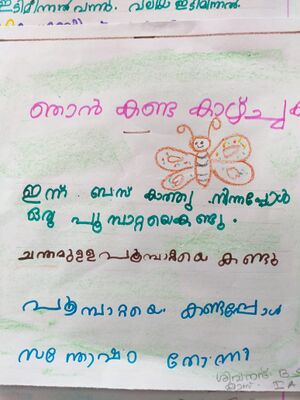 ഇടിമിന്നൽ വന്നു. വലിയ ഇടിമിന്നൽ.
ഞാൻ കണ്ട കാഴ്ച്ചക
ഇന്ന് ബസ് കാത്തു നിന്നപ്പോൾ
ഒരു പൂമ്പാറ്റയെകണ്ടു.
ചന്തമുള്ള പൂമ്പാറ്റയെ കണ്ടു
പൂമ്പാറ്റയെ കണ്ടപ്പോൾ
സന്തോഷം തോന്നി
ശിവനന്ദൻ. B S
ക്ലാസ് I A